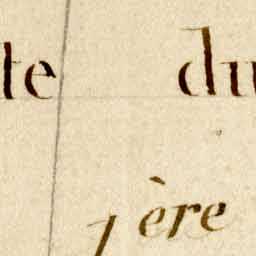 te du
1ère